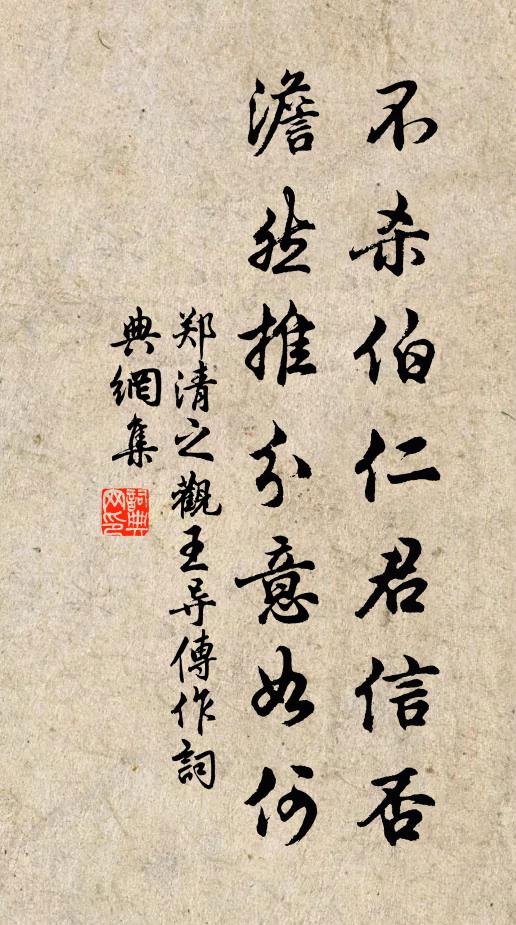 不杀伯仁君信否
澹然推分意如何
郑清之觀王导傳作詞
典網集
詞典网印